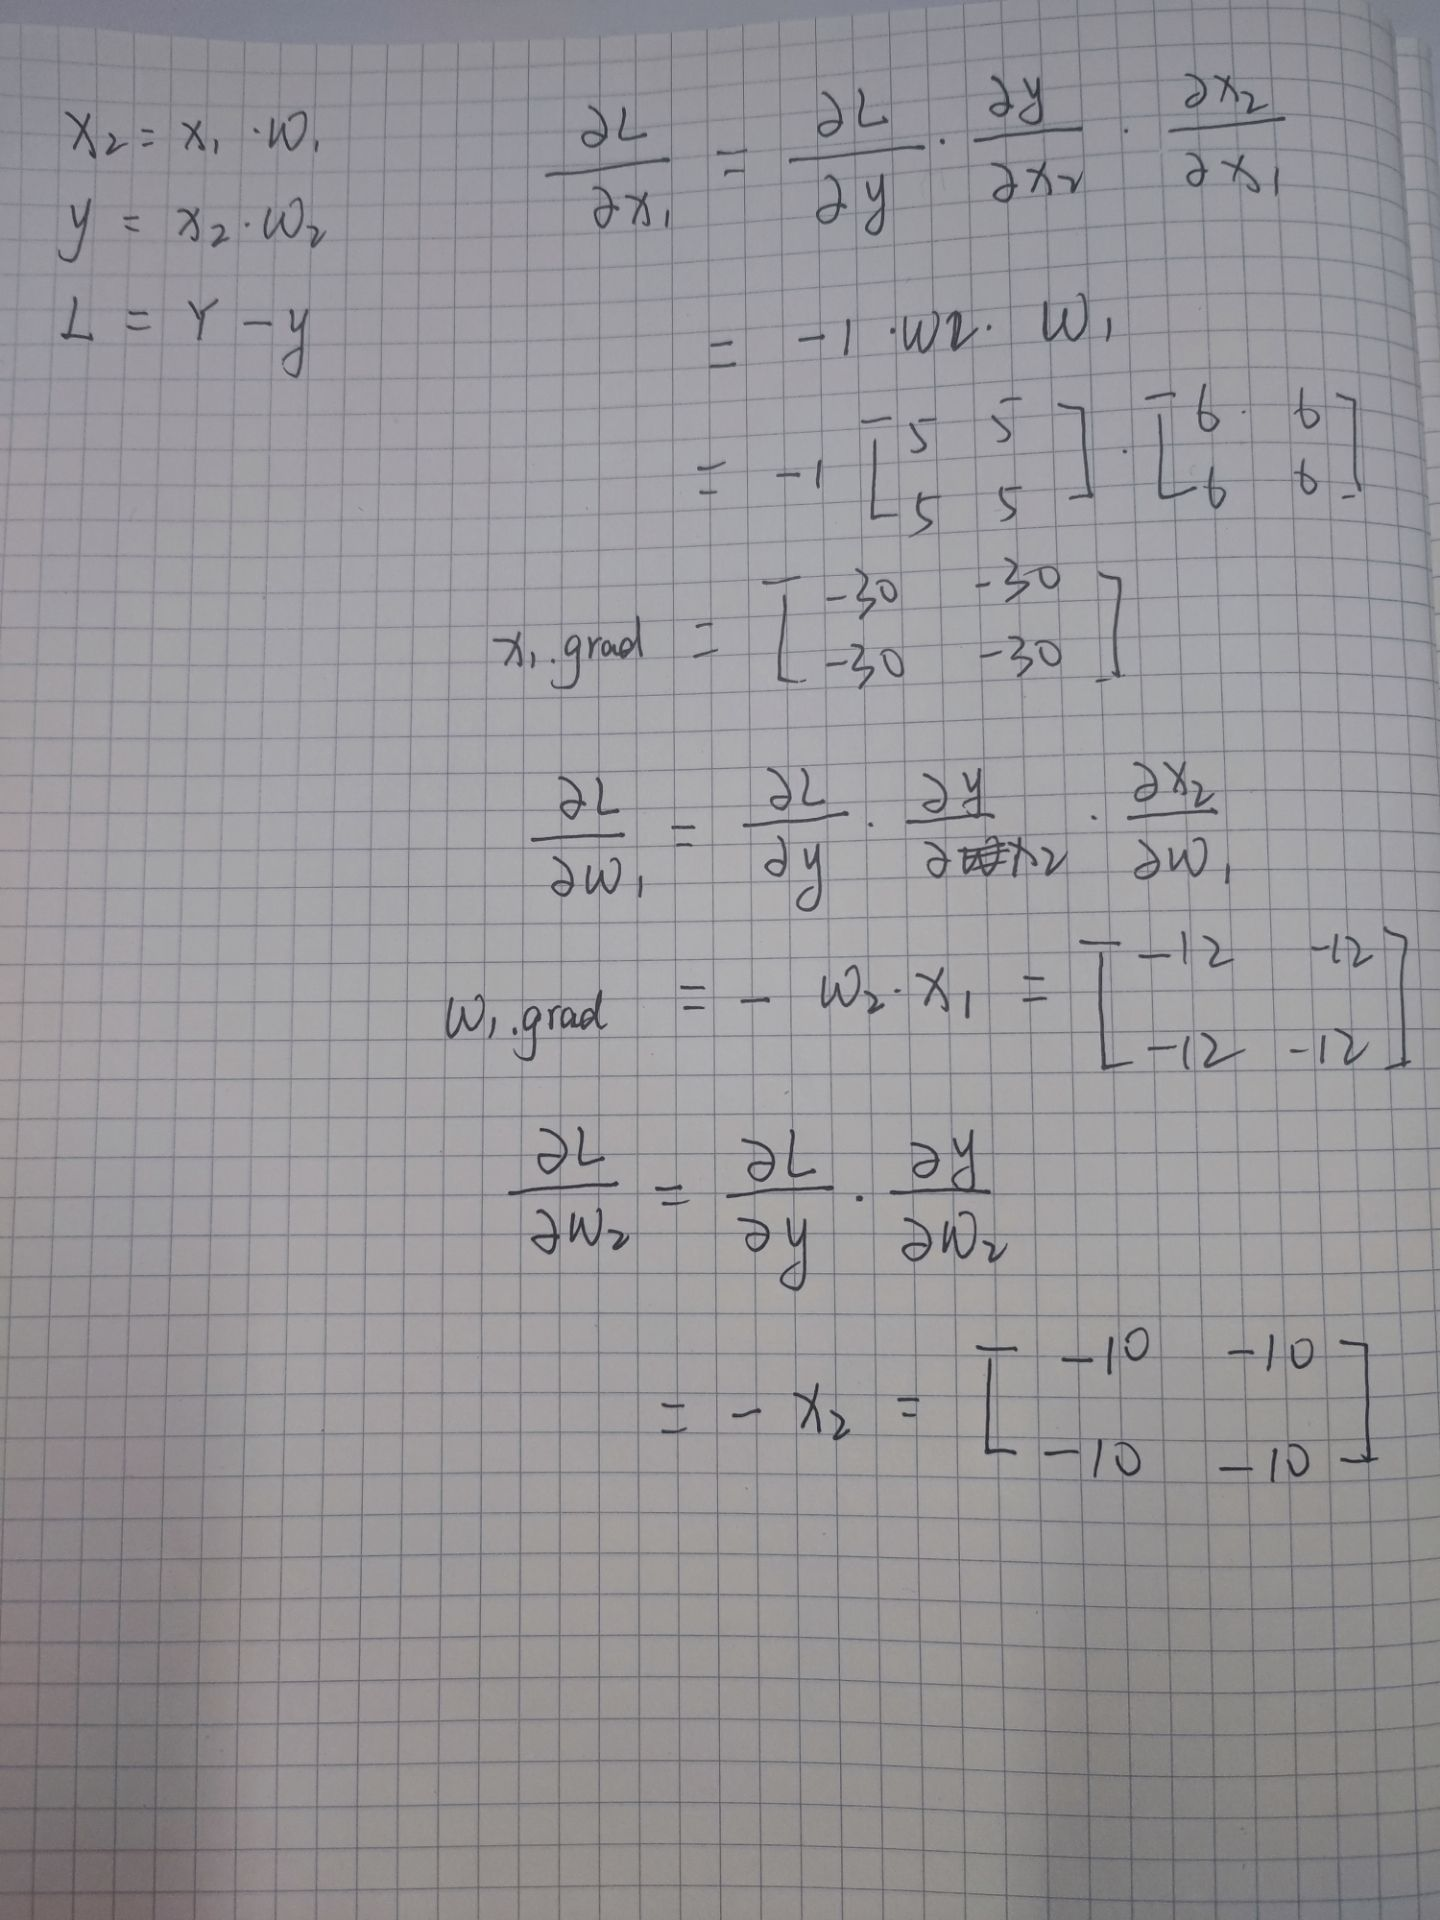 x₂ = x₁ · w₁
y = x₂ · w₂
L = Y - y
∂L/∂x₁ = ∂L/∂y · ∂y/∂x₂ · ∂x₂/∂x₁
= -1 · w2 · w₁
= -1 [5 5; 5 5] · [6 6; 6 6]
x₁.grad = [-30 -30; -30 -30]
∂L/∂w₁ = ∂L/∂y · ∂y/∂x₂ · ∂x₂/∂w₁
w₁.grad = - w₂ · x₁ = [-12 -12; -12 -12]
∂L/∂w₂ = ∂L/∂y · ∂y/∂w₂
= - x₂ = [-10 -10; -10 -10]